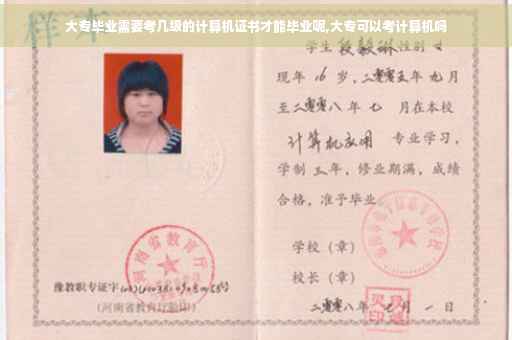 大专毕业需要考几级的计算机证书才能毕业呢,大专可以考计算机吗
样本
学生 性别 女
现年 16 岁,二零零五年 九月
至二零零八年 七 月在本校
计算机应用 专业学习,
学制 三 年,修业期满,成绩
合格,准予毕业
学校(章)
校长(章)
二零零八年 月 一 日
河南省教育厅
豫教职专证字
(河南省教育厅验印)